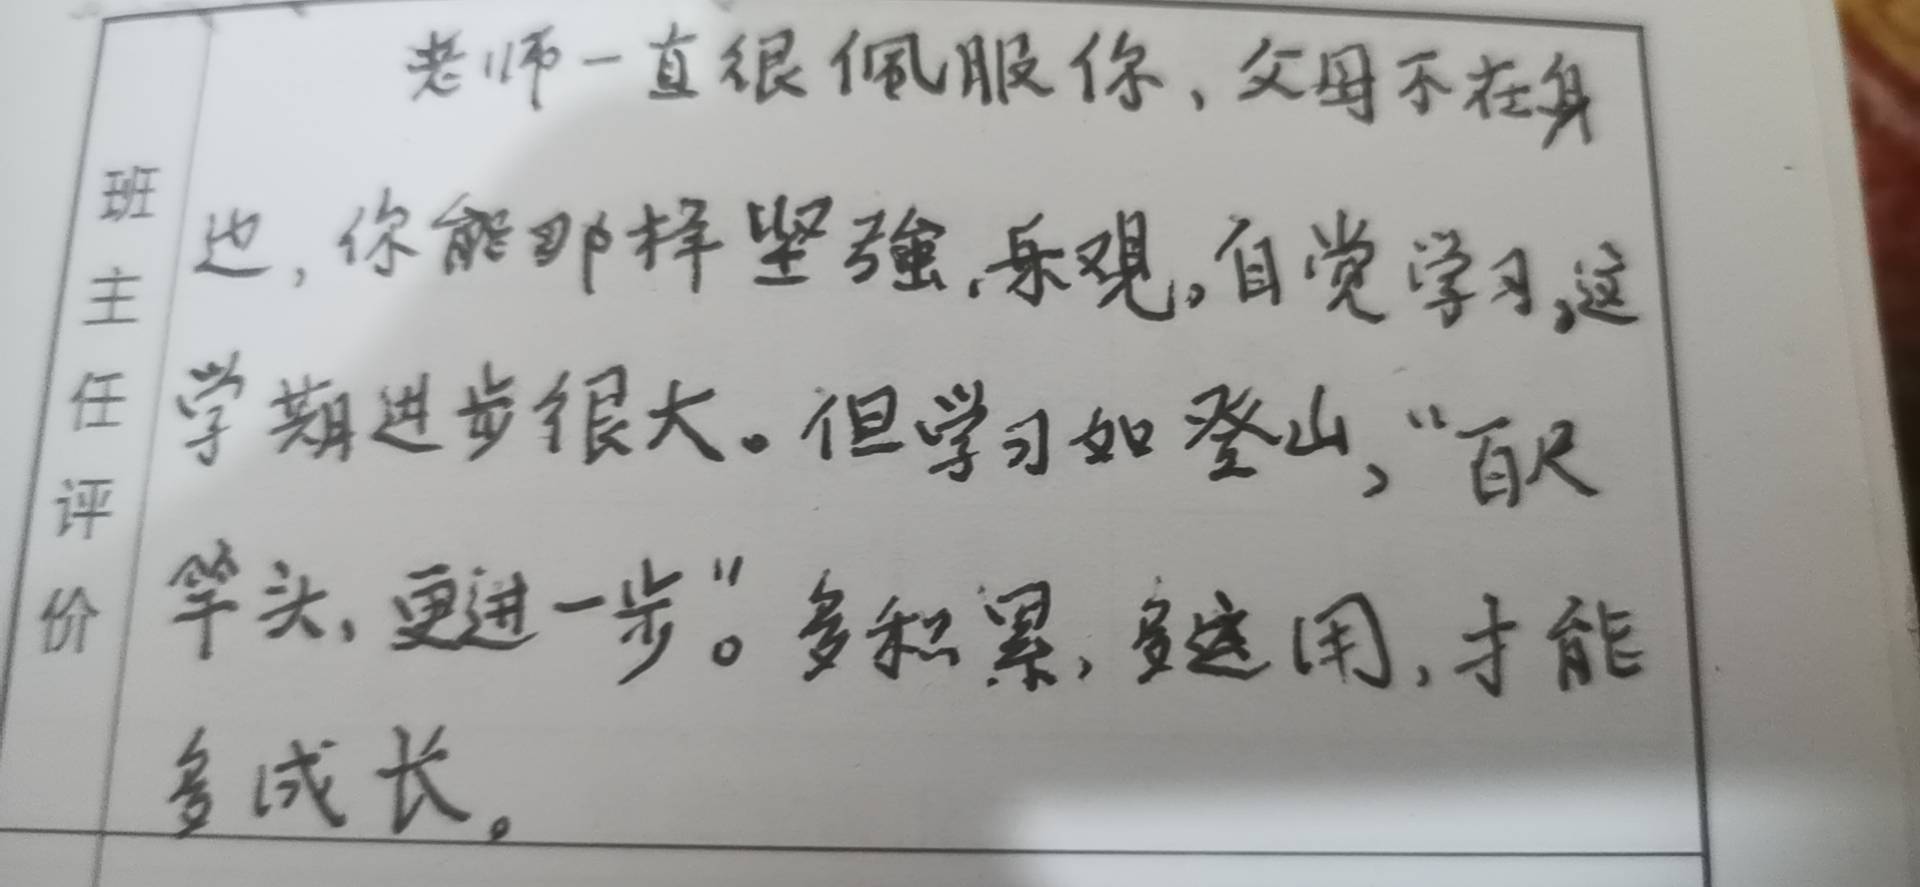 班主任评价
老师一直很佩服你，父母不在身
边，你能那样坚強、乐观。自觉学习，这
学期进步很大。但学习如登山，“百尺
竿头，更进一步”。多积累，多运用，才能
多成长。